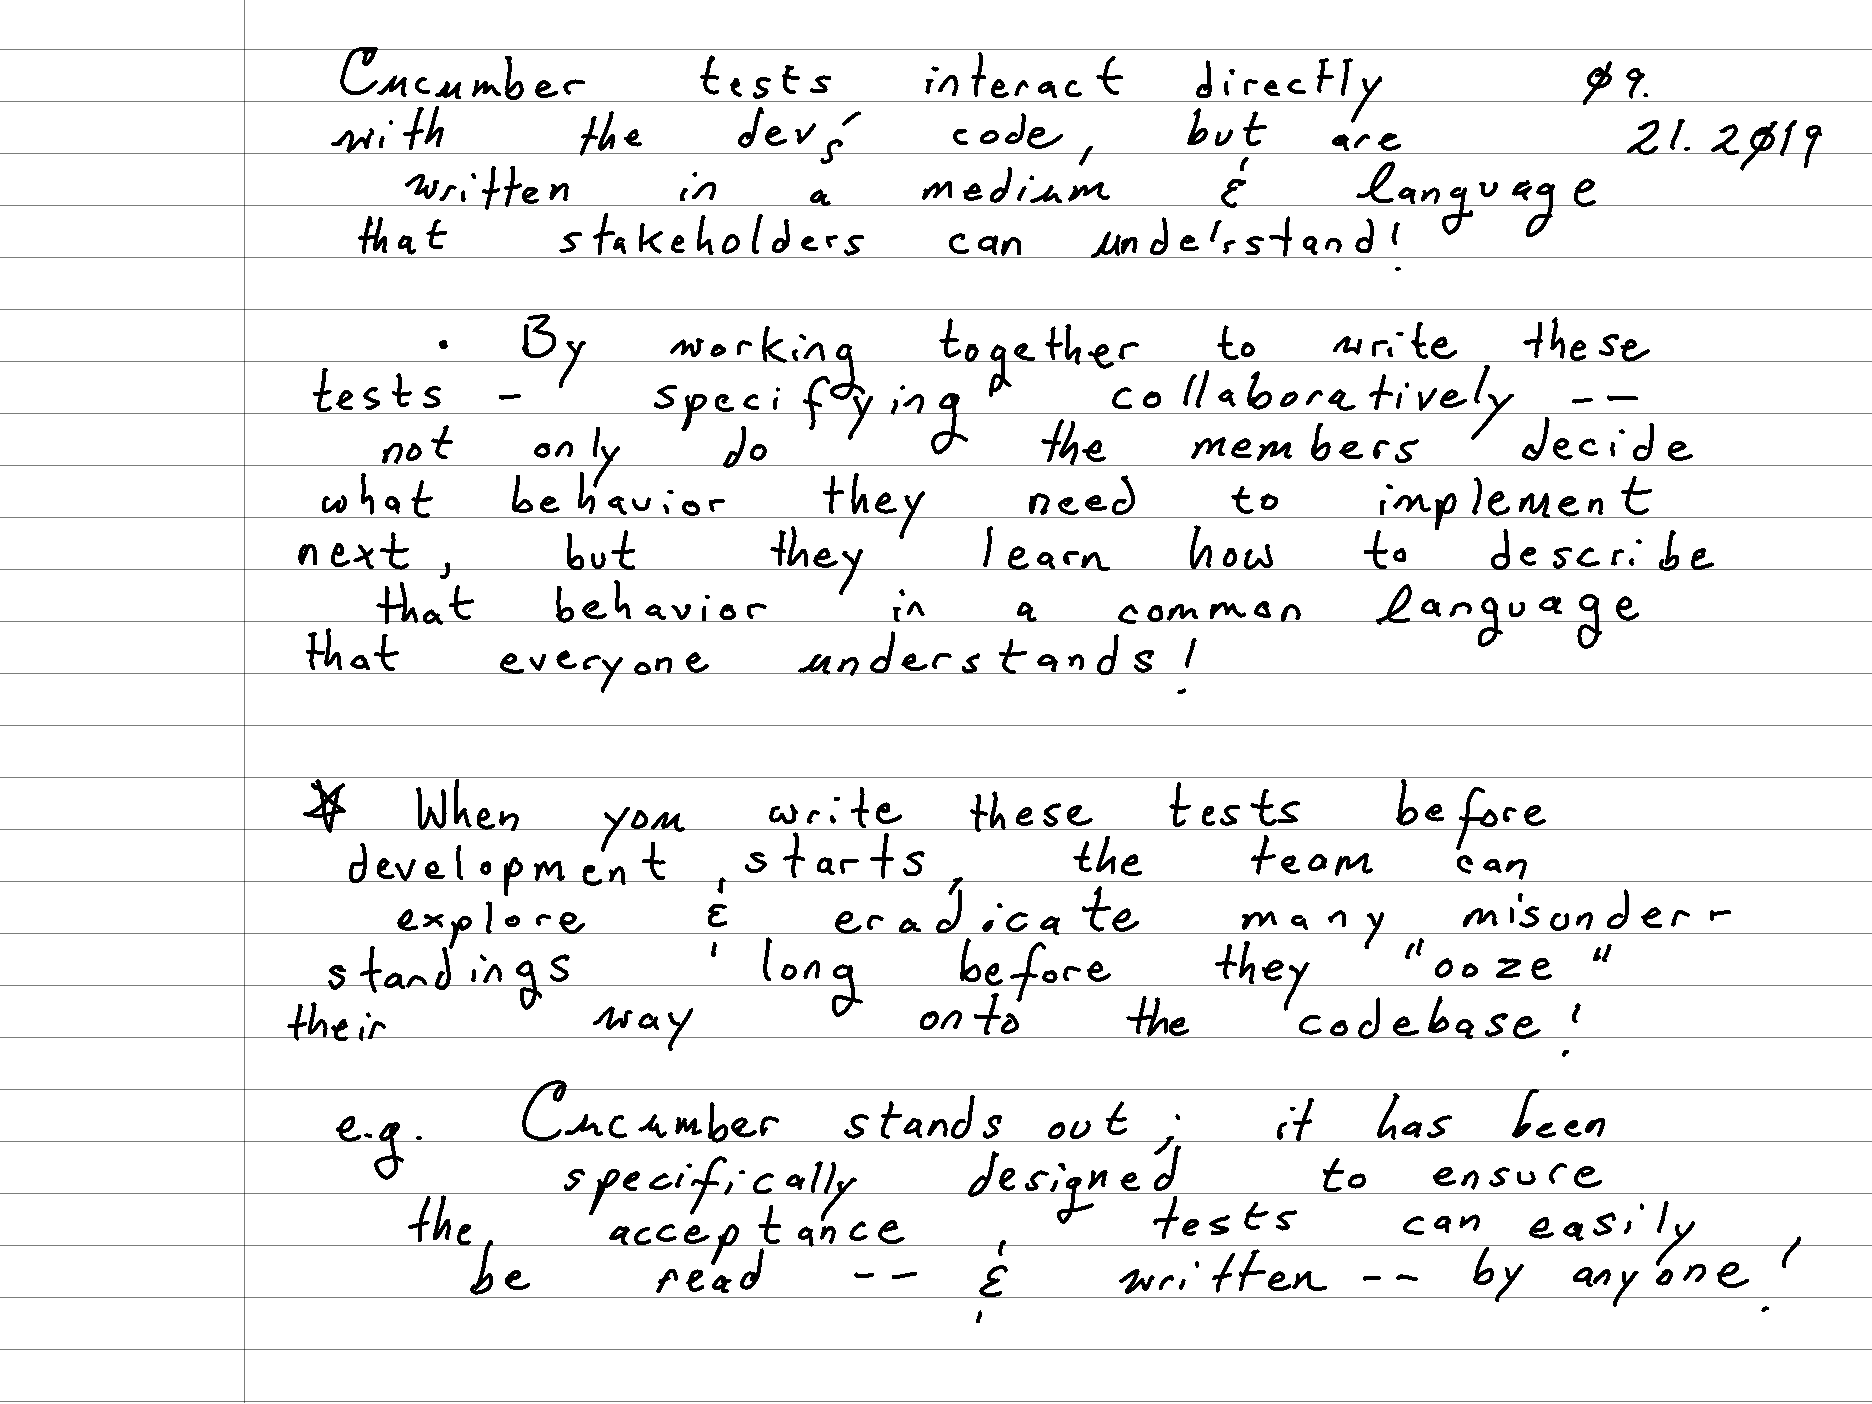 Cucumber tests interact directly 09.
with the dev's code, but are 21.2019
written in a medium & language
that stakeholders can understand!
· By working together to write these
tests - specifying collaboratively --
not only do the members decide
what behavior they need to implement
next, but they learn how to describe
that behavior in a common language
that everyone understands!
☆ When you write these tests before
development starts, the team can
explore & eradicate many misunder-
standings long before they "ooze"
their way onto the codebase!
e.g. Cucumber stands out; it has been
specifically designed to ensure
the acceptance tests can easily
be read -- & written -- by anyone!